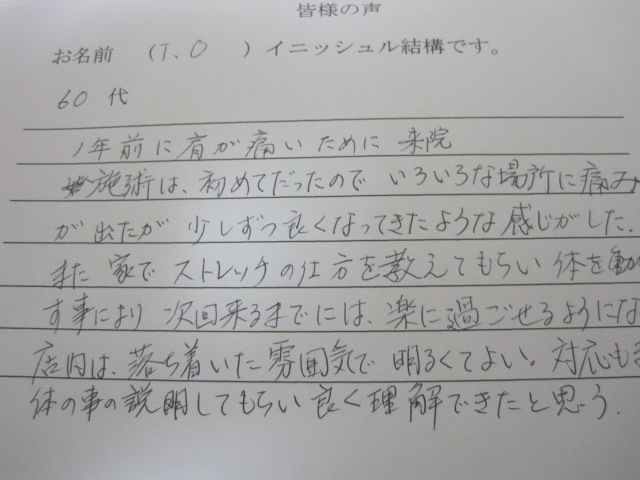 皆様の声
お名前 （T、O ）イニッシュル結構です。
60 代
1年前に肩が痛いために 来院
施術は、初めてだったので いろいろな場所に痛み
が出たが 少しずつ良くなってきたような感じがした.
また 家で ストレッチの仕方を教えてもらい 体を動か
す事により 次回来るまでには、楽に過ごせるようにな
店内は、落ち着いた雰囲気で 明るくてよい。対応も
体の事の説明してもらい良く理解できたと思う.